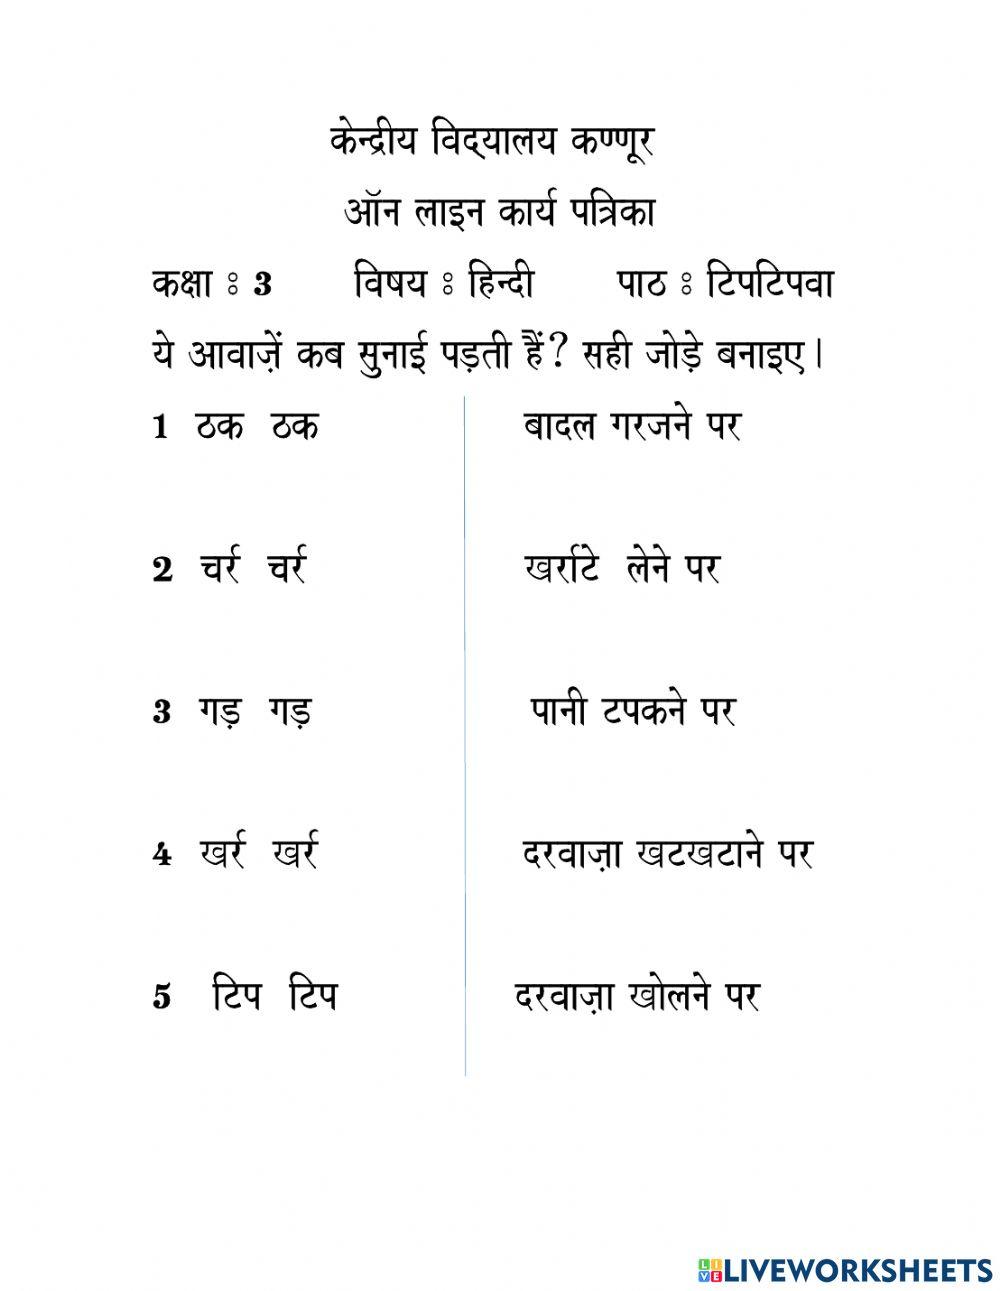 केन्द्रीय विद्‌यालय कण्णूर
ऑन लाइन कार्य पत्रिका
कक्षा : 3 विषय : हिन्दी पाठ : टिपटिपवा
ये आवाज़ें कब सुनाई पड़ती हैं? सही जोड़े बनाइए।
1 ठक ठक बादल गरजने पर
2 चर्र चर्र खर्राटे लेने पर
3 गड़ गड़ पानी टपकने पर
4 खर्र खर्र दरवाज़ा खटखटाने पर
5 टिप टिप दरवाज़ा खोलने पर
LIVE LIVEWORKSHEETS